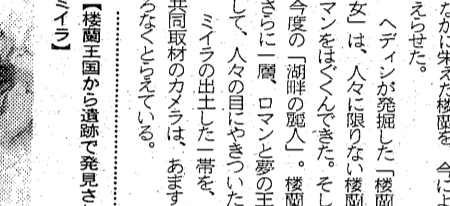 なかに栄えた楼蘭を、今によ
えらせた。
ヘディンが発掘した「楼蘭
女」は、人々に限りない楼蘭
マンをはぐくんできた。そし
今度の「湖畔の麗人」。楼蘭
さらに一層、ロマンと夢の王
して、人々の目にやきついた
ミイラの出土した一帯を、
共同取材のカメラは、あます
ろなくとらえている。
【楼蘭王国から遺跡で発見さ
ミイラ】